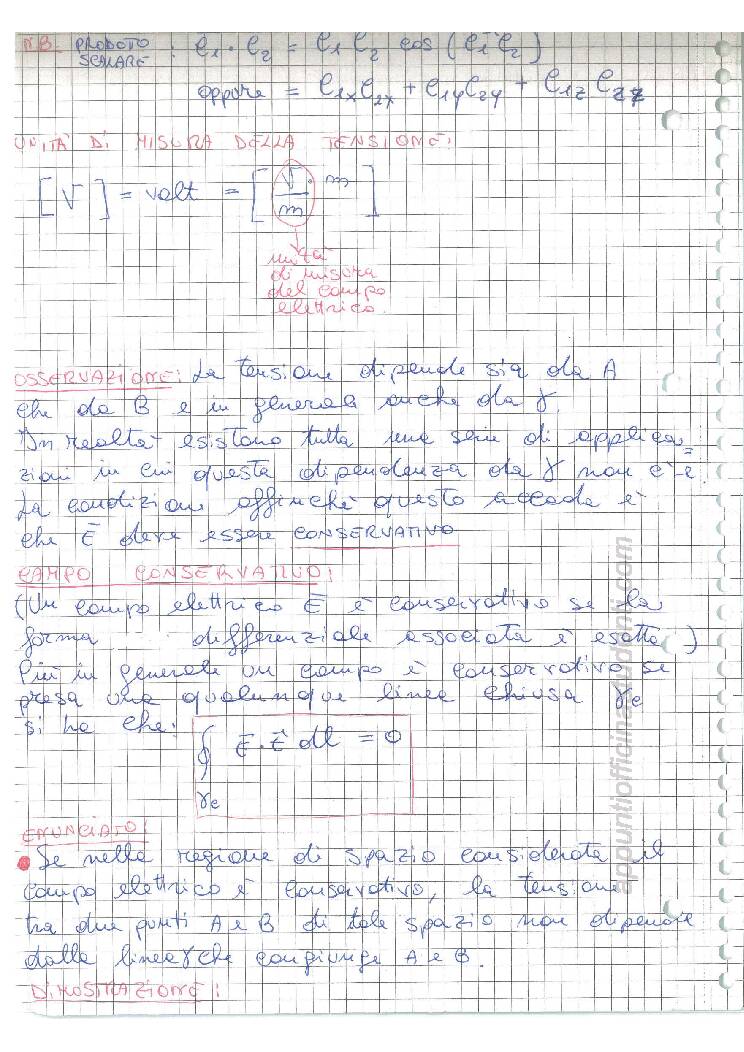 N.B. PRODOTO SCALARE : e1 · e2 = e1 e2 cos (e1^e2)
oppure = e1x e2x + e1y e2y + e1z e2z
UNITÀ DI MISURA DELLA TENSIONE:
[V] = volt = [V/m · m]
unità
di misura
del campo
elettrico.
OSSERVAZIONE: La tensione dipende sia da A
che da B e in generale anche da γ.
In realtà esistono tutta una serie di applica=
zioni in cui questa dipendenza da γ non c'è
La condizione affinché questo accada è
che E deve essere CONSERVATIVO
CAMPO CONSERVATIVO:
(Un campo elettrico E è conservativo se la
forma differenziale associata è esatta)
Più in generale un campo è conservativo se
presa una qualunque linea chiusa γc
si ha che:
∮ E · t dl = 0
γc
ENUNCIATO:
• Se nella regione di spazio considerata il
campo elettrico è conservativo, la tensione
tra due punti A e B di tale spazio non dipende
dalla linea γ che congiunge A e B.
DIMOSTRAZIONE:
appuntiofficinastudenti.com